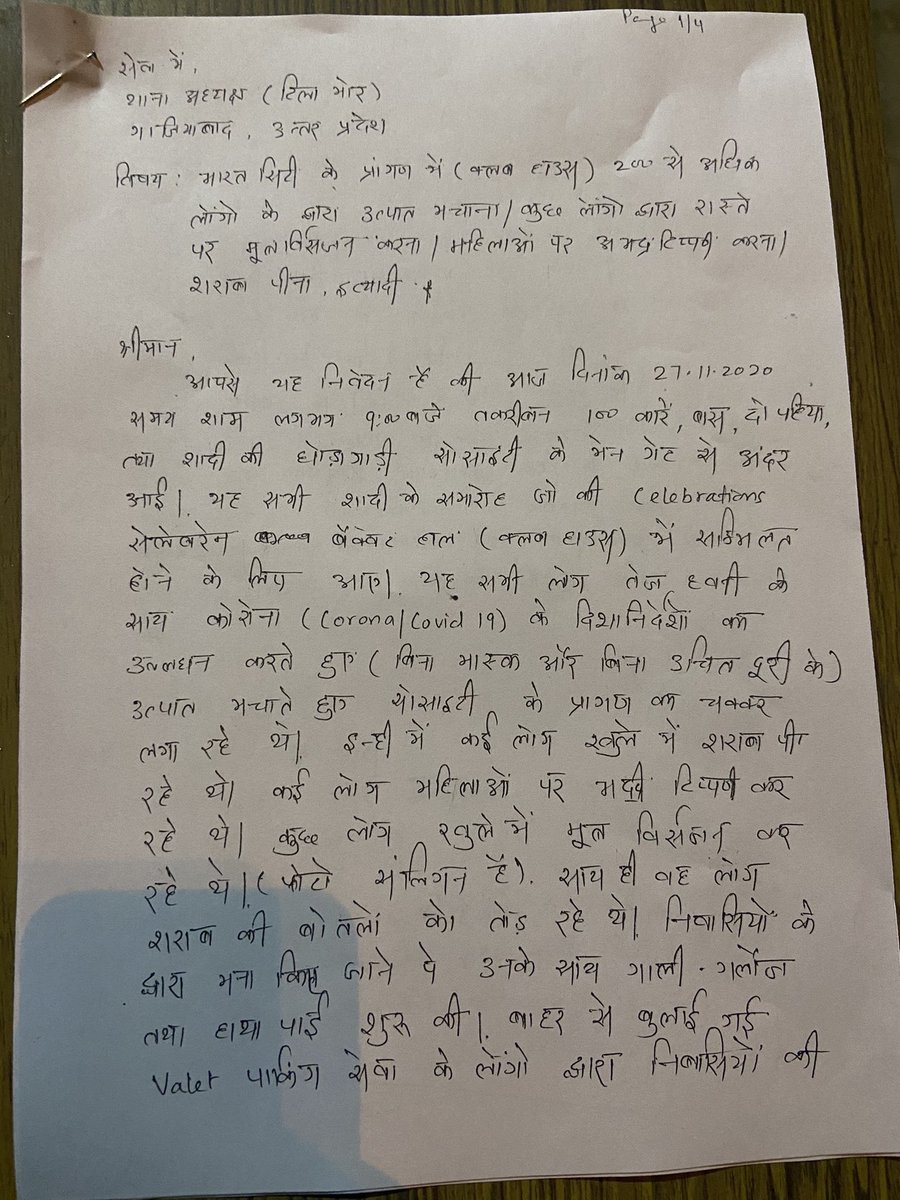 Page 1/4
सेवा में,
थाना अध्यक्ष (टिला मोर)
गाजियाबाद, उत्तर प्रदेश
विषय: भारत सिटी के प्रांगण में (क्लब हाउस) 200 से अधिक
लोंगो के द्वारा उत्पात मचाना / कुछ लोंगो द्वारा रास्ते
पर मूत्र विर्सजन करना / महिलाओं पर अभद्र टिप्पणी करना /
शराब पीना, इत्यादी
श्रीमान,
आपसे यह निवेदन है की आज दिनांक 27.11.2020
समय शाम लगभग 9:00 बजे तकरीबन 100 कारें, बस, दो पहिया,
तथा शादी की घोड़ागाड़ी सोसाइंटी के मेन गेट से अंदर
आई। यह सभी शादी के समारोह जो की Celebrations
सेलेबरेन बैंक्वट हाल (क्लब हाउस) में सम्मिलत
होने के लिए आए। यह सभी लोग तेज ध्वनी के
साथ कोरोना (Corona/Covid 19) के दिशानिर्देशों का
उल्लघंन करते हुए (बिना मास्क और बिना उचित दूरी के)
उत्पात मचाते हुए सोसाइटी के प्रागण का चक्कर
लगा रहे थे। इन्ही में कई लोग खुले में शराब पी
रहे थे। कई लोग महिलाओं पर भद्दी टिप्पणी कर
रहे थे। कुछ लोग खुले में मूत्र विर्सजन कर
रहे थे। (फोटो संलिगन है). साथ ही वह लोग
शराब की बोतलों को तोड़ रहे थे। निवासियों के
द्वारा मना किए जाने पे उनके साथ गाली-गलौज
तथा हाथा पाई शुरू की। बाहर से बुलाई गई
Valet पार्किंग सेवा के लोंगो द्वारा निवासियों की